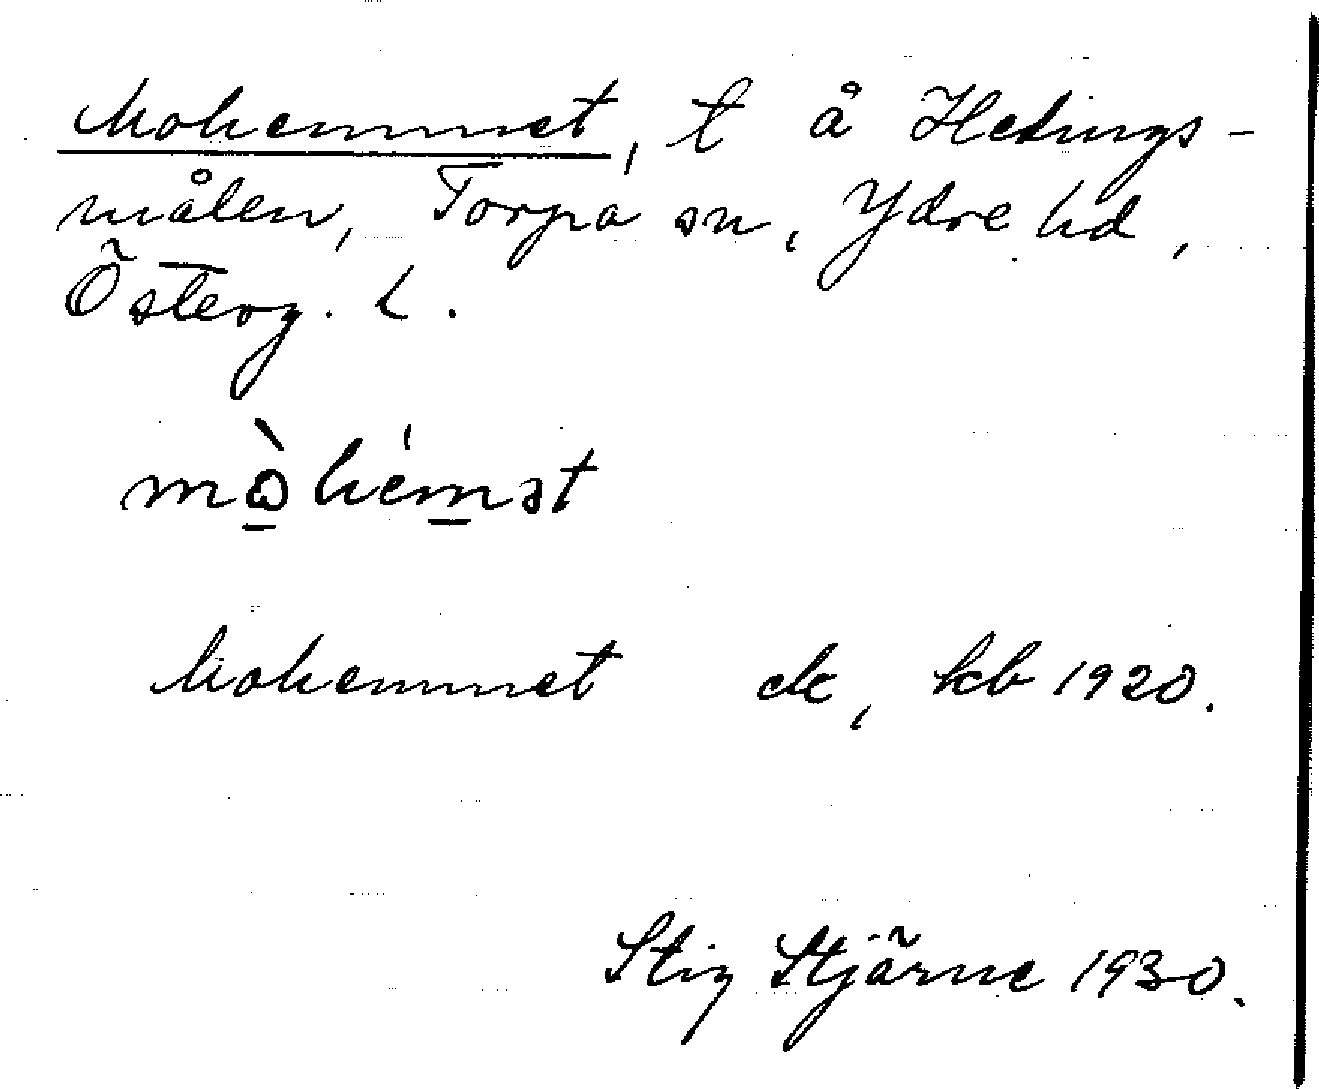 Mohemmet, t å Hedings-
målen, Torpa sn, Ydre hd,
Österg. l.
mὼhémət
Mohemmet ek, kb 1920.
Stig Stjärne 1930.